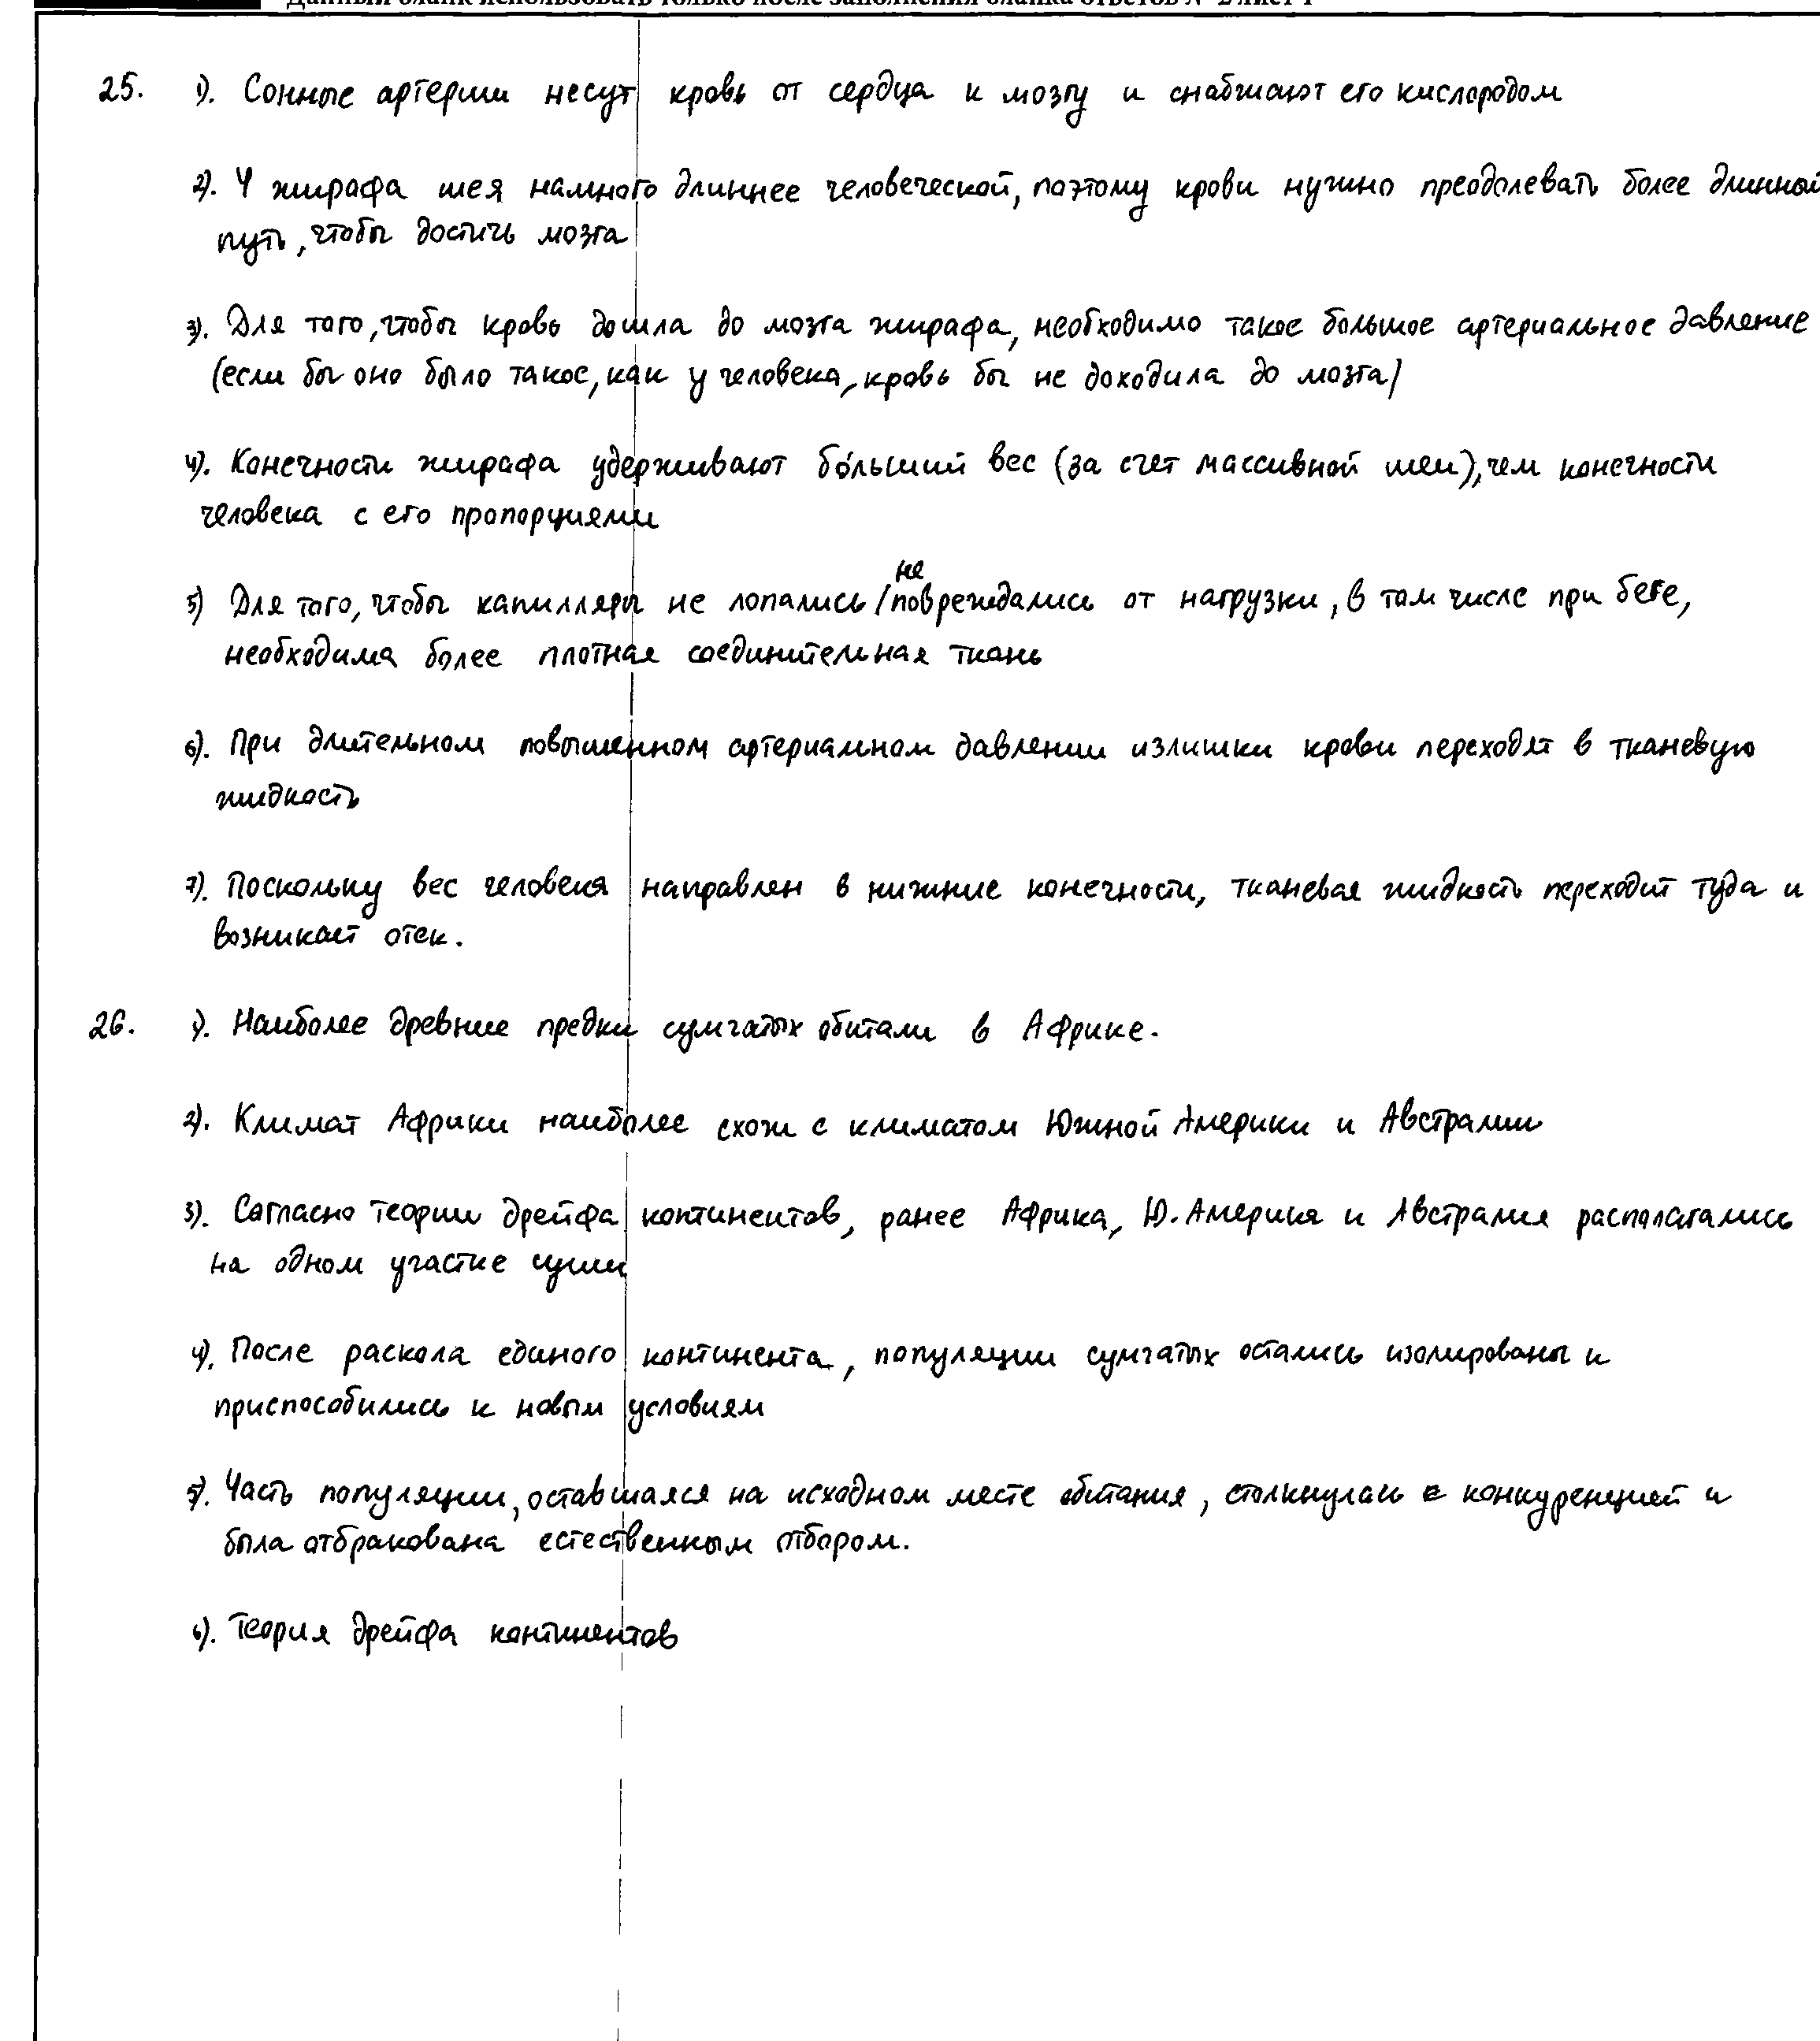 Данный бланк использовать только после заполнения бланка ответов № 2 лист 1
25. 1). Сонные артерии несут кровь от сердца к мозгу и снабжают его кислородом
2). У жирафа шея намного длиннее человеческой, поэтому крови нужно преодолевать более длинный
путь, чтобы достичь мозга
3). Для того, чтобы кровь дошла до мозга жирафа, необходимо такое большое артериальное давление
(если бы оно было такое, как у человека, кровь бы не доходила до мозга)
4). Конечности жирафа удерживают бо́льший вес (за счет массивной шеи), чем конечности
человека с его пропорциями
5) Для того, чтобы капилляры не лопались / не повреждались от нагрузки, в том числе при беге,
необходима более плотная соединительная ткань
6). При длительном повышенном артериальном давлении излишки крови переходят в тканевую
жидкость
7). Поскольку вес человека направлен в нижние конечности, тканевая жидкость переходит туда и
возникает отек.
26. 1). Наиболее древние предки сумчатых обитали в Африке.
2). Климат Африки наиболее схож с климатом Южной Америки и Австралии
3). Согласно теории дрейфа континентов, ранее Африка, Ю. Америка и Австралия располагались
на одном участке суши
4). После раскола единого континента, популяции сумчатых остались изолированы и
приспособились к новым условиям
5). Часть популяции, оставшаяся на исходном месте обитания, столкнулась с конкуренцией и
была отбракована естественным отбором.
6). Теория дрейфа континентов